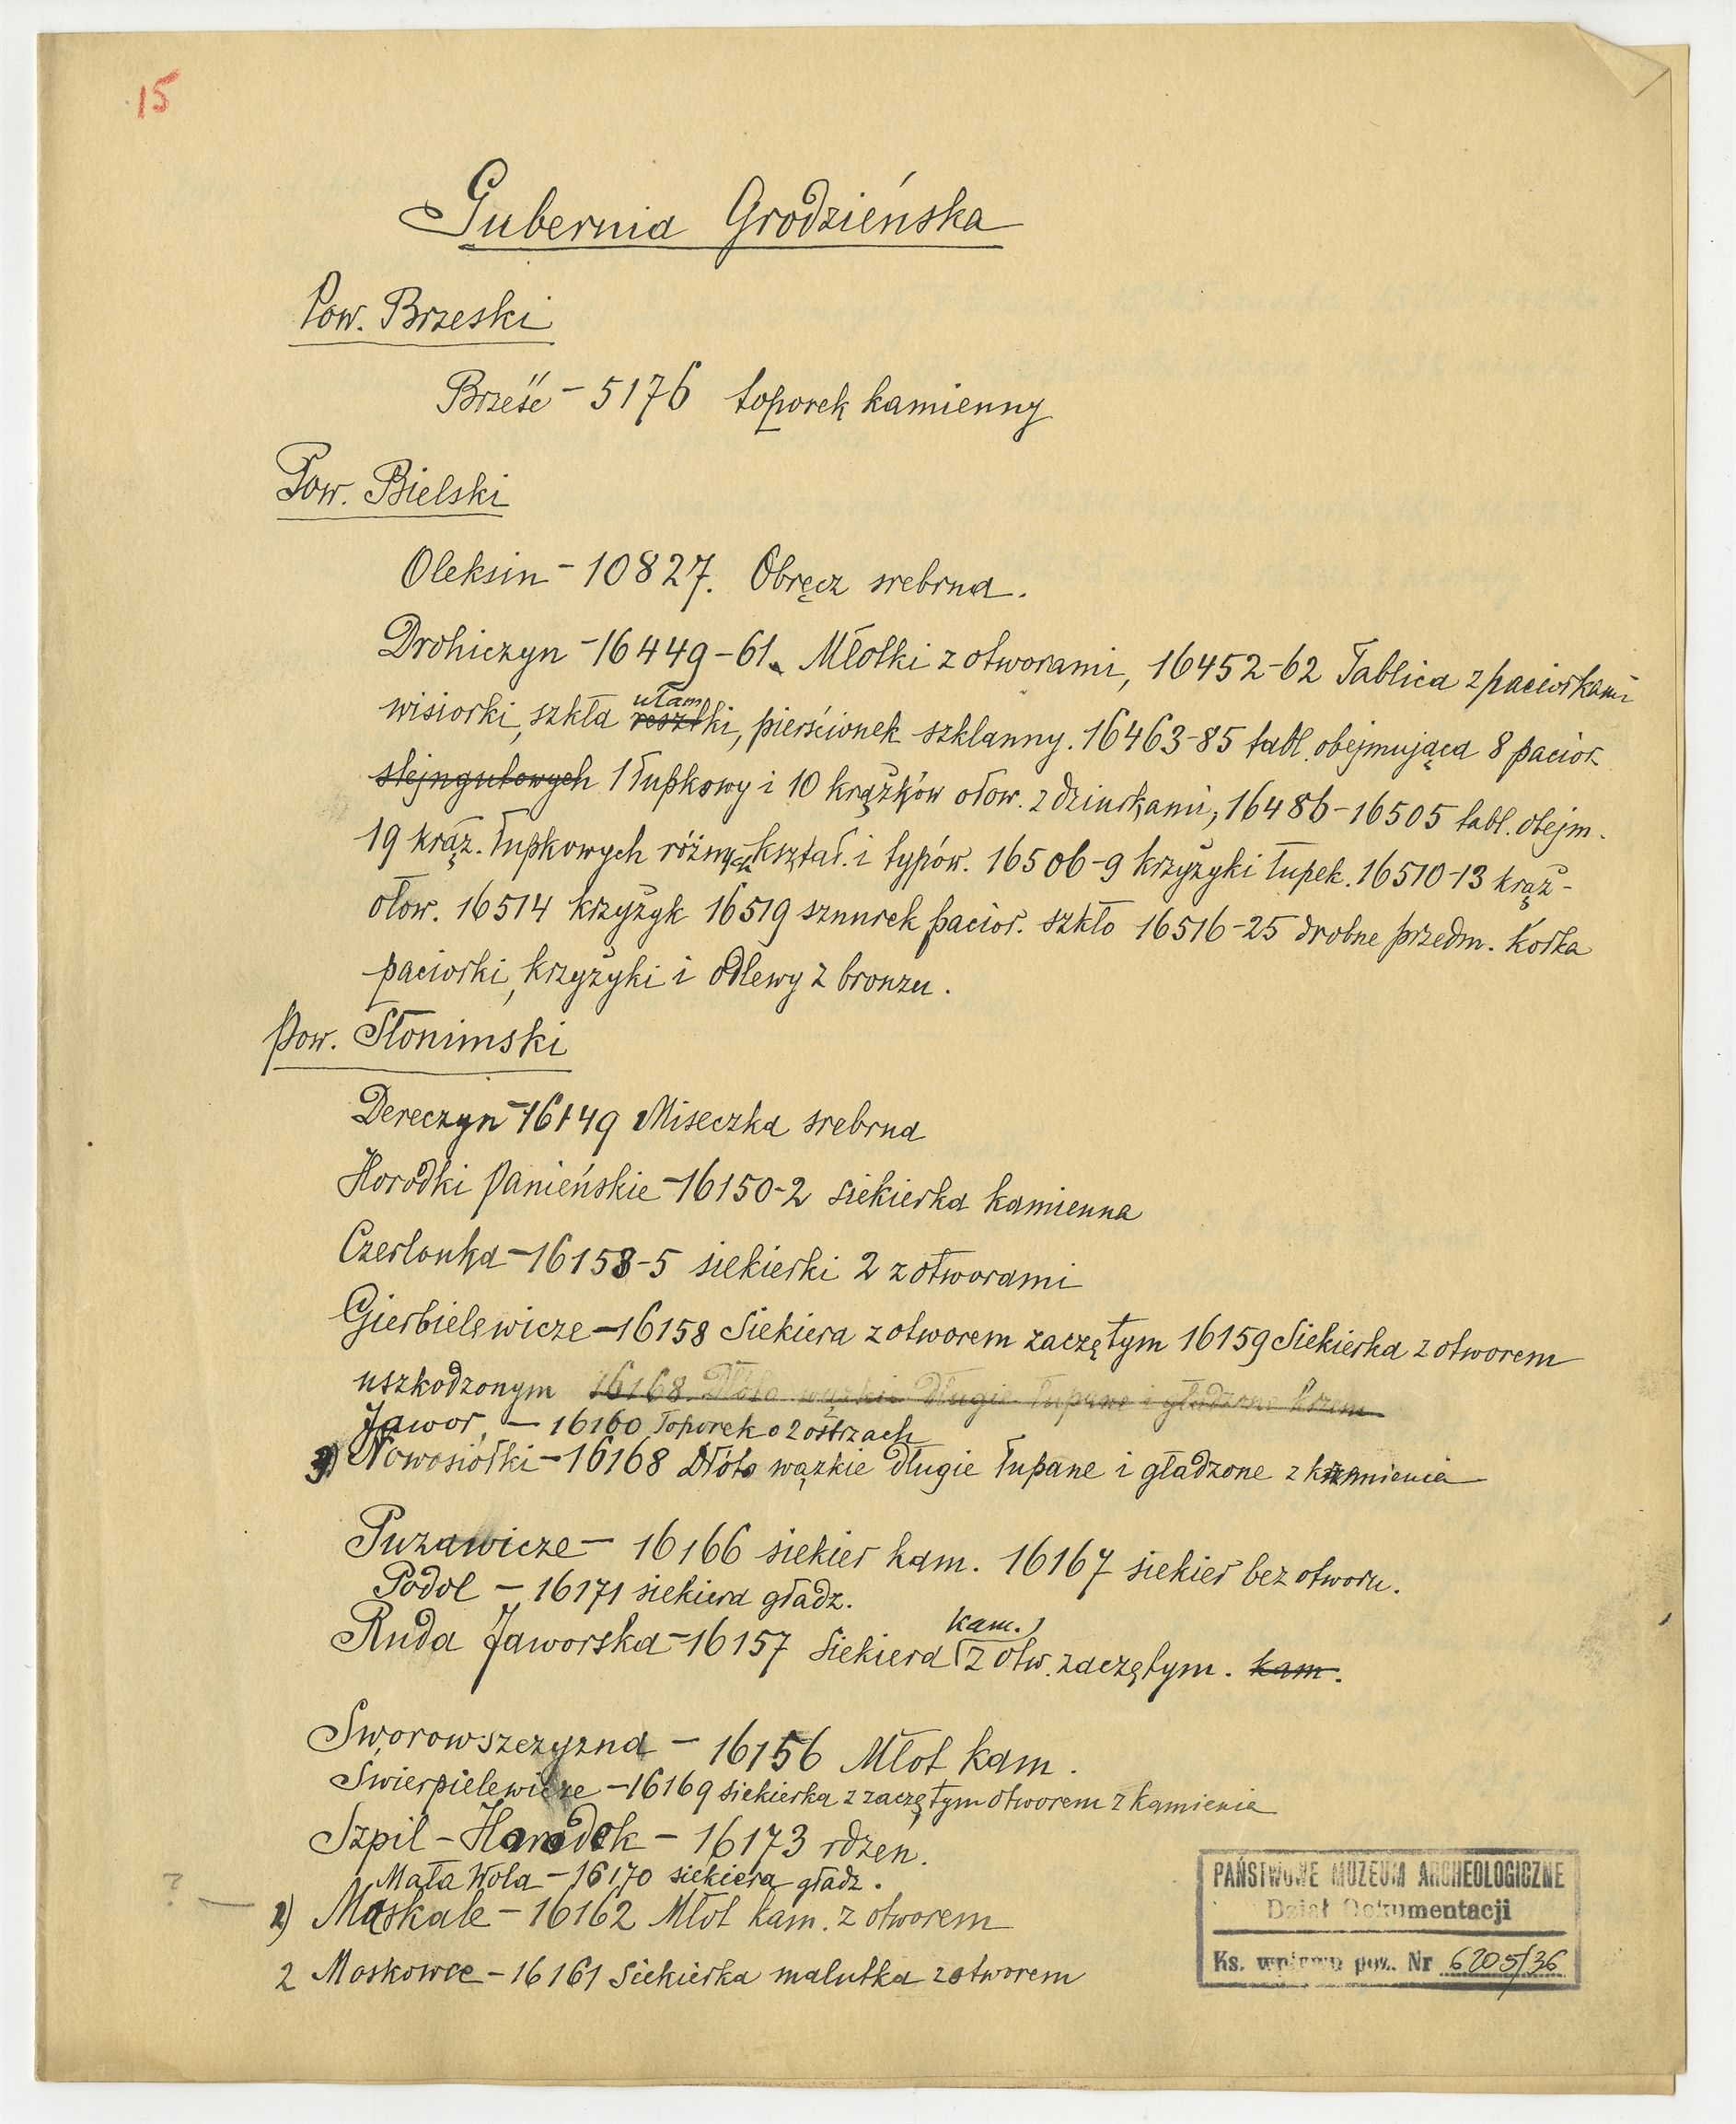 15
Gubernia Grodzieńska
Pow. Brzeski
Brześć – 5176 toporek kamienny
Pow. Bielski
Oleksin – 10827. Obręcz srebrna.
Drohiczyn – 16449–61. Młotki z otworami, 16452–62 Tablica z paciorkami
ułam
wisiorki, szkła resztki, pierścionek szklanny. 16463–85 tabl. obejmująca 8 pacior
stejngutowych 1 łupkowy i 10 krążków ołow. z dziurkami, 16486–16505 tabl. obejm.
19 krąż. łupkowych różnych kształ. i typów. 16506–9 krzyżyki łupek. 16510–13 krąż-
ołow. 16514 krzyżyk 16519 sznurek pacior. szkło 16516–25 drobne przedm. kółka
paciorki, krzyżyki i odlewy z bronzu.
Pow. Słonimski
Dereczyn – 16149 Miseczka srebrna
Horodki Panieńskie – 16150–2 siekierka kamienna
Czerlonka – 16153–5 siekierki 2 z otworami
Gierbielewicze – 16158 Siekiera z otworem zaczętym 16159 Siekierka z otworem
uszkodzonym 16168 Dłóto wązkie długie łupane i gładzone krzem
Jawor, – 16160 Toporek o 2 ostrzach
3) Nowosiółki – 16168 Dłóto wązkie długie łupane i gładzone z kamienia
Puzawicze – 16166 siekier kam. 16167 siekier bez otworu.
Podol – 16171 siekiera gładz.
kam.
Ruda Jaworska – 16157 Siekiera z otw. zaczętym. kam.
Sworowszczyzna – 16156 Młot kam.
Świerpielewicze – 16169 siekierka z zaczętym otworem z kamienia
Szpil – Horodok – 16173 rdzen.
Mała Wola – 16170 siekiera gładz.
? – 1) Moskale – 16162 Młot kam. z otworem
2 Moskowce – 16161 Siekierka malutka z otworem
PAŃSTWOWE MUZEUM ARCHEOLOGICZNE
Dział Dokumentacji
Ks. wpływu poz. Nr 6205/36